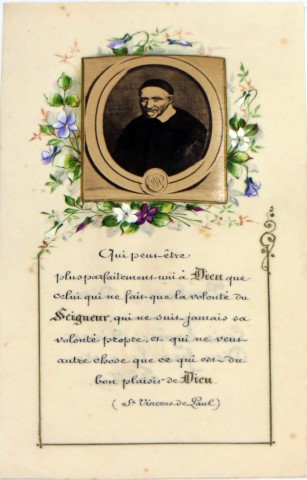 Qui peut-être
plus parfaitement uni à Dieu que
celui qui ne fait que la volonté du
Seigneur, qui ne suit jamais sa
volonté propre, et qui ne veut
autre chose que ce qui est du
bon plaisir de Dieu.
(St Vincent de Paul)